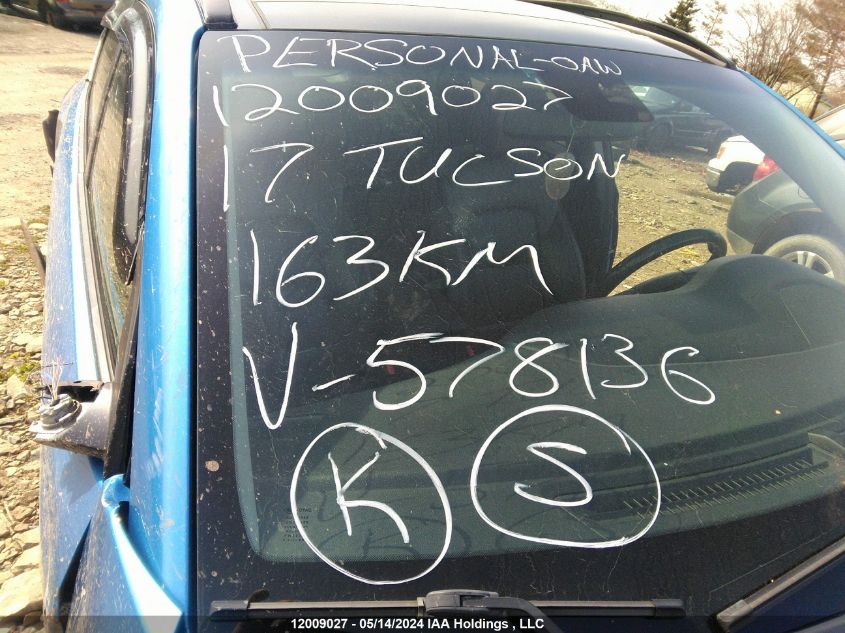 PERSONAL-OAW
12009027
17 TUCSON
163KM
V-578136
K S
12009027 - 05/14/2024 IAA Holdings , LLC